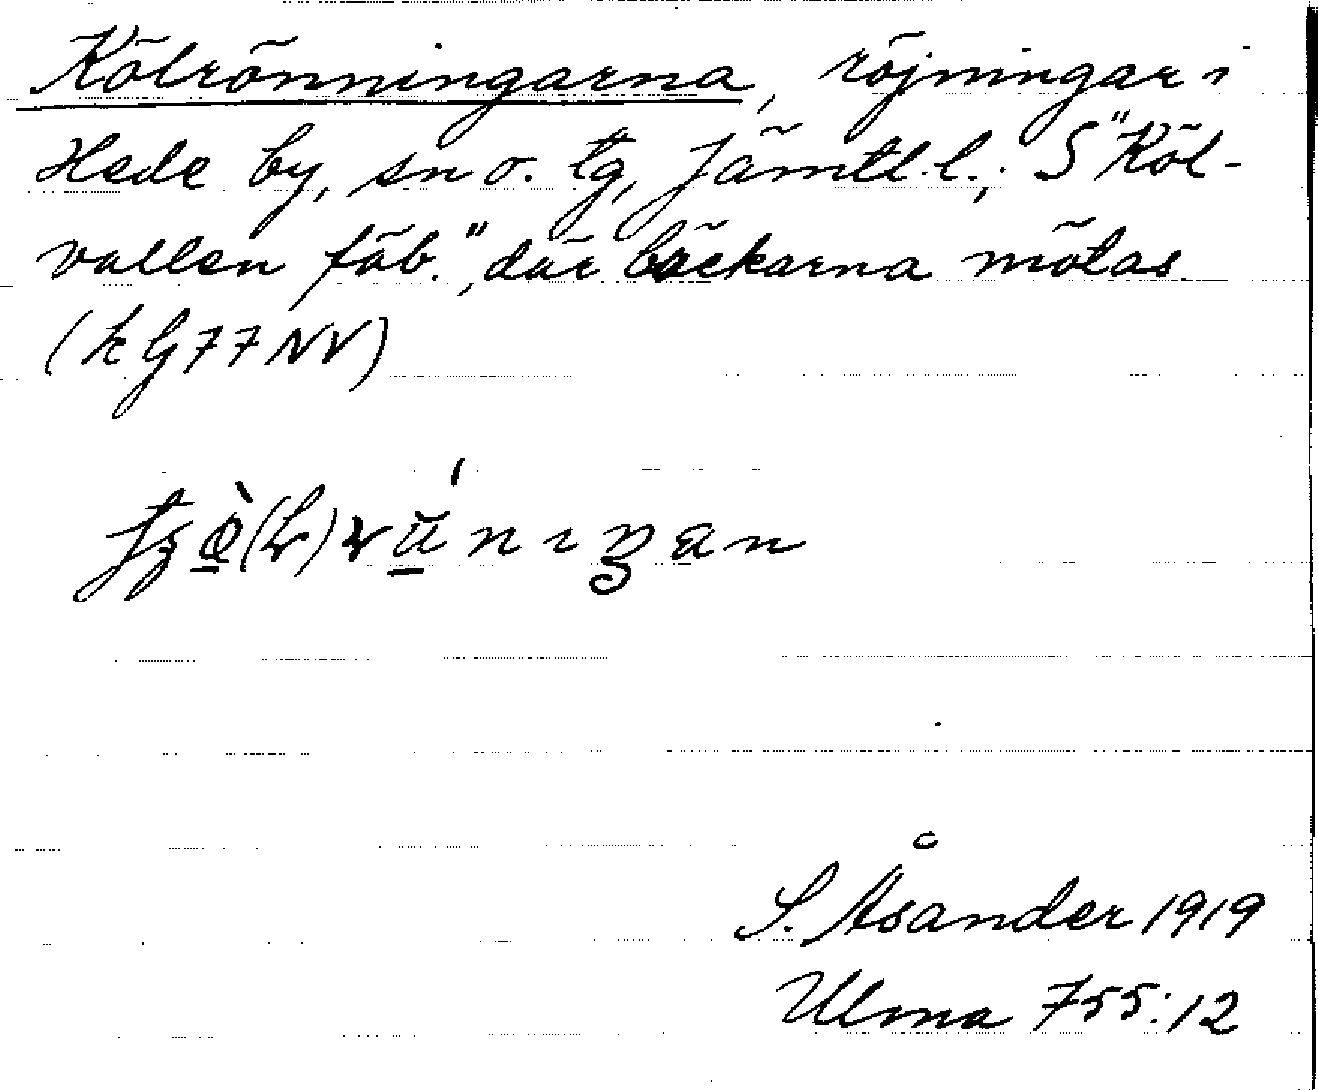 Kölrönningarna, röjningar i
Hede by, sn o. tg, Jämtl. l.; S "Köl-
vallen fäb.", där bäckarna mötas.
(k G77NV)
S. Åsander 1919
Ulma 755:12